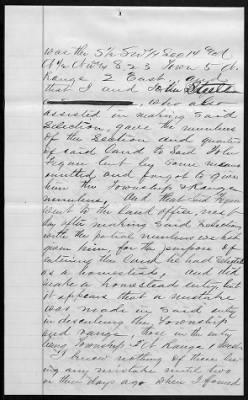 was the S½ SW¼ Sec 14 and
N½ NW¼ S 23 Town 5 N.
Range 2 East, and
that I and John
who also
assisted in making said
Selection, gave the numbers
of the Section and quarter
of said land to said
but by some means
omitted and forgot to give
him the Township & Range
numbers. And that said
went to the land office next
day after making said selection
with the partial numbers
given him, for the purpose of
entering the land he had selected
as a homestead, and did
make a homestead entry but
it appears that a mistake
was made in said entry
in describing the Township
and range. those in the entry
being Township
I knew nothing of there being
any mistake until two
or three days ago when I